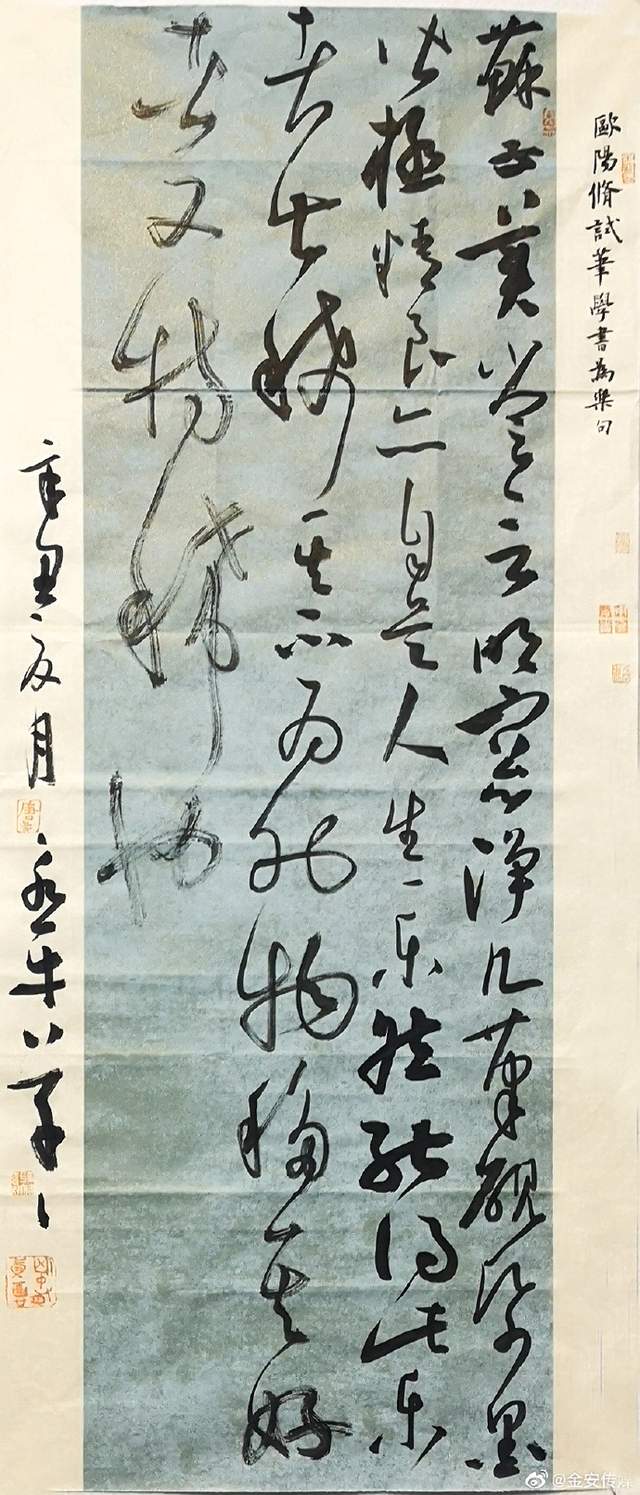 歐陽脩試筆學書為樂句
蘇子美嘗言云明窓淨几筆硯紙墨
皆極精良亦自是人生一樂然能得此樂
者甚稀其不為外物移其好
者又特稀也
辛丑夏月
@金安传